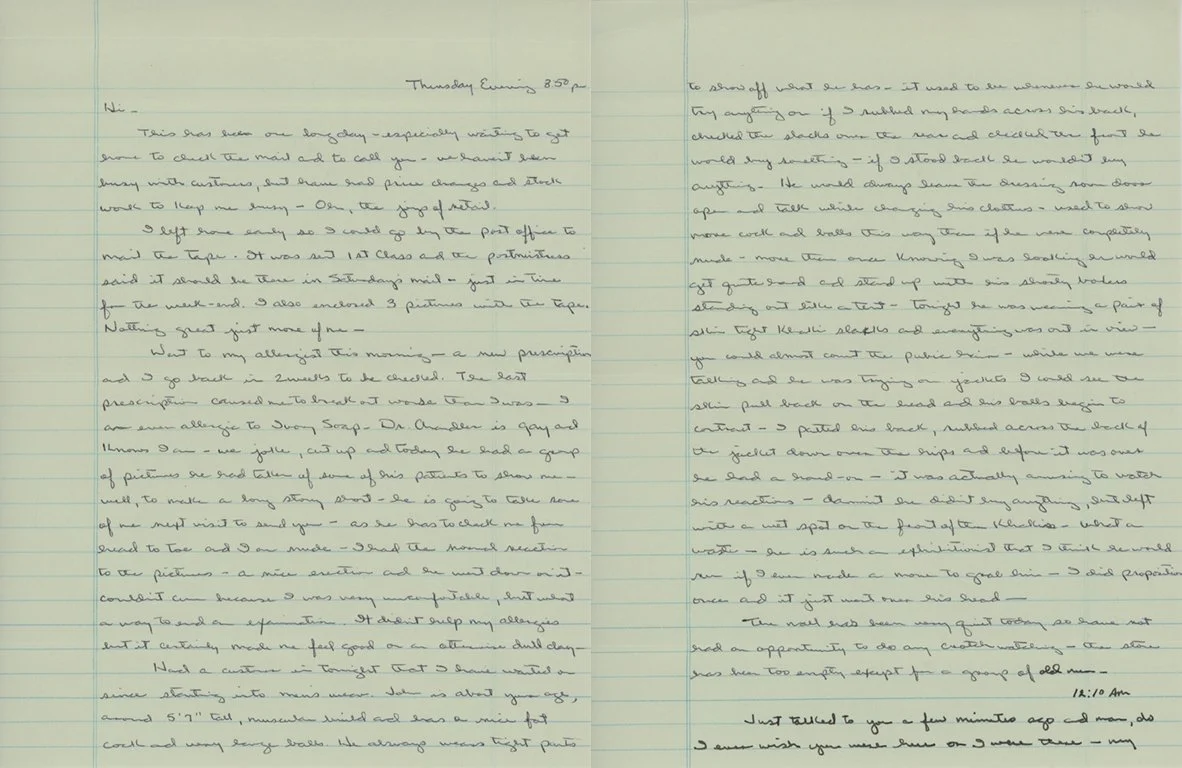 Thursday Evening 8:50 pm
Hi -
This has been one long day - especially waiting to get
home to check the mail and to call you - we haven't been
busy with customers, but have had price changes and stock
work to keep me busy - Oh, the joys of retail.
I left home early so I could go by the post office to
mail the tape. It was sent 1st Class and the postmistress
said it should be there in Saturday's mail - just in time
for the week-end. I also enclosed 3 pictures with the tape.
Nothing great just more of me -
Went to my allergist this morning - a new prescription
and I go back in 2 weeks to be checked. The last
prescription caused me to break out worse than I was - I
am even allergic to Ivory Soap - Dr. Chandler is gay and
knows I am - we joke, cut up and today he had a group
of pictures he had taken of some of his patients to show me -
well, to make a long story short - he is going to take some
of me next visit to send you - as he has to check me from
head to toe and I am nude - I had the normal reaction
to the pictures - a nice erection and he went down on it -
couldn't cum because I was very uncomfortable, but what
a way to end an examination. It didn't help my allergies
but it certainly made me feel good on an otherwise dull day -
Had a customer in tonight that I have waited on
since starting into men's wear. John is about your age,
around 5'7" tall, muscular build and has a nice fat
cock and very large balls. He always wears tight pants
to show off what he has - it used to be whenever he would
try anything on if I rubbed my hands across his back,
checked the slacks over the rear and checked the front he
would buy something - if I stood back he wouldn't buy
anything. He would always leave the dressing room door
open and talk while changing his clothes - used to show
more cock and balls this way than if he were completely
nude - more than once knowing I was looking he would
get quite hard and stand up with his shorty boxers
standing out like a tent - tonight he was wearing a pair of
skin tight khaki slacks and everything was out in view -
you could almost count the pubic hair - while we were
talking and he was trying on jackets I could see the
skin pull back on the head and his balls begin to
contract - I patted his back, rubbed across the back of
the jacket down over the hips and before it was over
he had a hard-on - it was actually amusing to watch
his reactions - dammit he didn't buy anything, but left
with a wet spot on the front of the khakis - what a
waste - he is such an exhibitionist that I think he would
run if I ever made a move to grab him - I did proposition
once and it just went over his head -
The mall has been very quiet today so have not
had an opportunity to do any crotch watching - the store
has been too empty except for a group of old men -
12:10 Am
Just talked to you a few minutes ago and man, do
I ever wish you were here or I were there - my